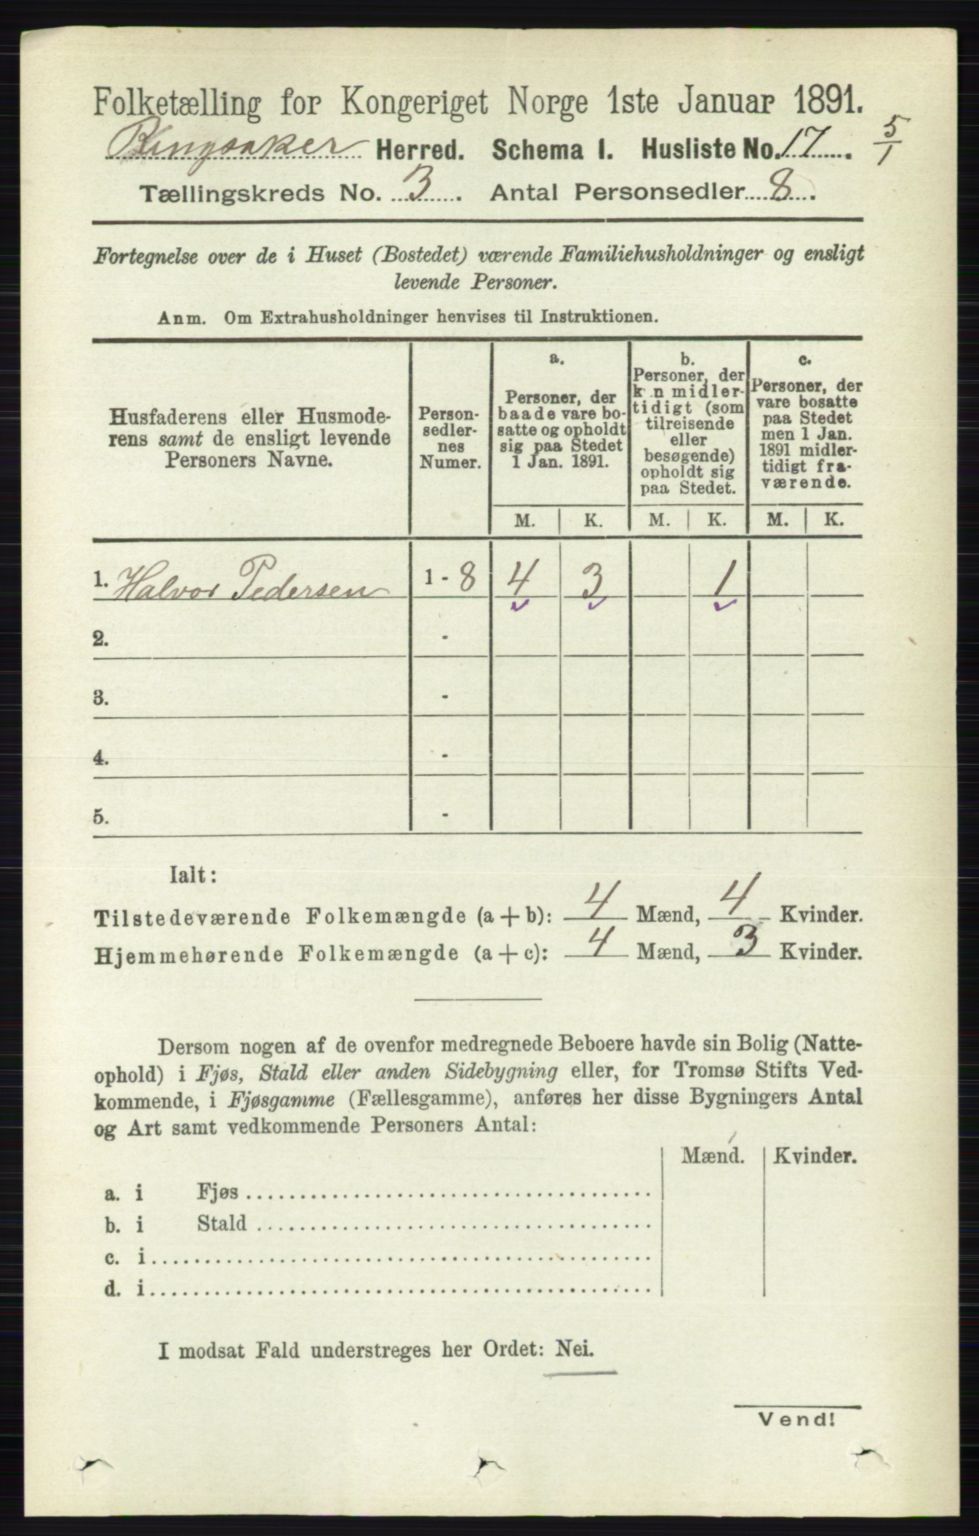 Folketælling for Kongeriget Norge 1ste Januar 1891.
Ringsaker Herred. Schema I. Husliste No. 17. 5/1
Tællingskreds No. 3. Antal Personsedler 8.
Fortegnelse over de i Huset (Bostedet) værende Familiehusholdninger og ensligt
levende Personer.
Anm. Om Extrahusholdninger henvises til Instruktionen.
Husfaderens eller Husmode-
rens samt de ensligt levende
Personers Navne.
Person-
sedler-
nes
Numer.
a.
Personer, der
baade vare bo-
satte og opholdt
sig paa Stedet
1 Jan. 1891.
b.
Personer, der
kun midler-
tidigt (som
tilreisende
eller
besøgende)
opholdt sig
paa Stedet.
c.
Personer, der
vare bosatte
paa Stedet
men 1 Jan.
1891 midler-
tidigt fra-
værende.
M. K. M. K. M. K.
1. Halvor Pedersen 1 - 8 4 3 1
2. -
3. -
4. -
5. -
Ialt:
Tilstedeværende Folkemængde (a + b): 4 Mænd, 4 Kvinder.
Hjemmehørende Folkemængde (a + c): 4 Mænd, 3 Kvinder.
Dersom nogen af de ovenfor medregnede Beboere havde sin Bolig (Natte-
ophold) i Fjøs, Stald eller anden Sidebygning eller, for Tromsø Stifts Ved-
kommende, i Fjøsgamme (Fællesgamme), anføres her disse Bygningers Antal
og Art samt vedkommende Personers Antal:
Mænd. Kvinder.
a. i Fjøs
b. i Stald
c. i
d. i
I modsat Fald understreges her Ordet: Nei.
Vend!